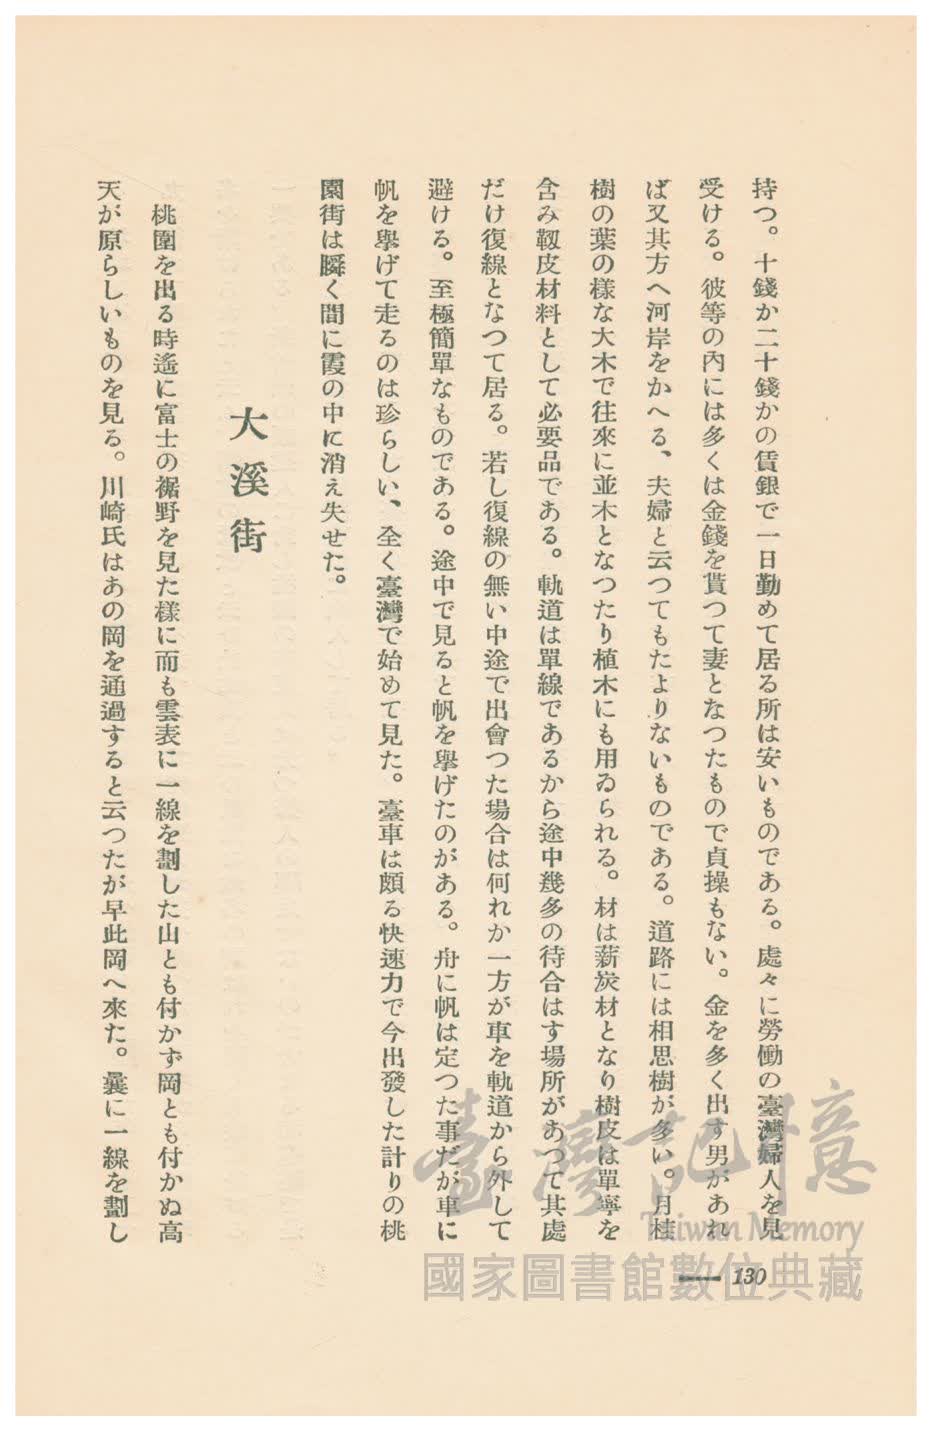 持つ。十錢か二十錢かの賃銀で一日勤めて居る所は安いものである。處々に勞働の臺灣婦人を見
受ける。彼等の內には多くは金錢を貰つて妻となつたもので貞操もない。金を多く出す男があれ
ば又其方へ河岸をかへる、夫婦と云つてもたよりないものである。道路には相思樹が多い。月桂
樹の葉の樣な大木で往來に並木となつたり植木にも用ゐられる。材は薪炭材となり樹皮は單寧を
含み靱皮材料として必要品である。軌道は單線であるから途中幾多の待合はす場所があつて其處
だけ復線となつて居る。若し復線の無い中途で出會つた場合は何れか一方が車を軌道から外して
避ける。至極簡單なものである。途中で見ると帆を擧げたのがある。舟に帆は定つた事だが車に
帆を擧げて走るのは珍らしい、全く臺灣で始めて見た。臺車は頗る快速力で今出發した計りの桃
園街は瞬く間に霞の中に消え失せた。
大溪街
桃園を出る時遙に富士の裾野を見た樣に而も雲表に一線を劃した山とも付かず岡とも付かぬ高
天が原らしいものを見る。川崎氏はあの岡を通過すると云つたが早此岡へ來た。曩に一線を劃し
130
臺灣記憶
Taiwan Memory
國家圖書館數位典藏